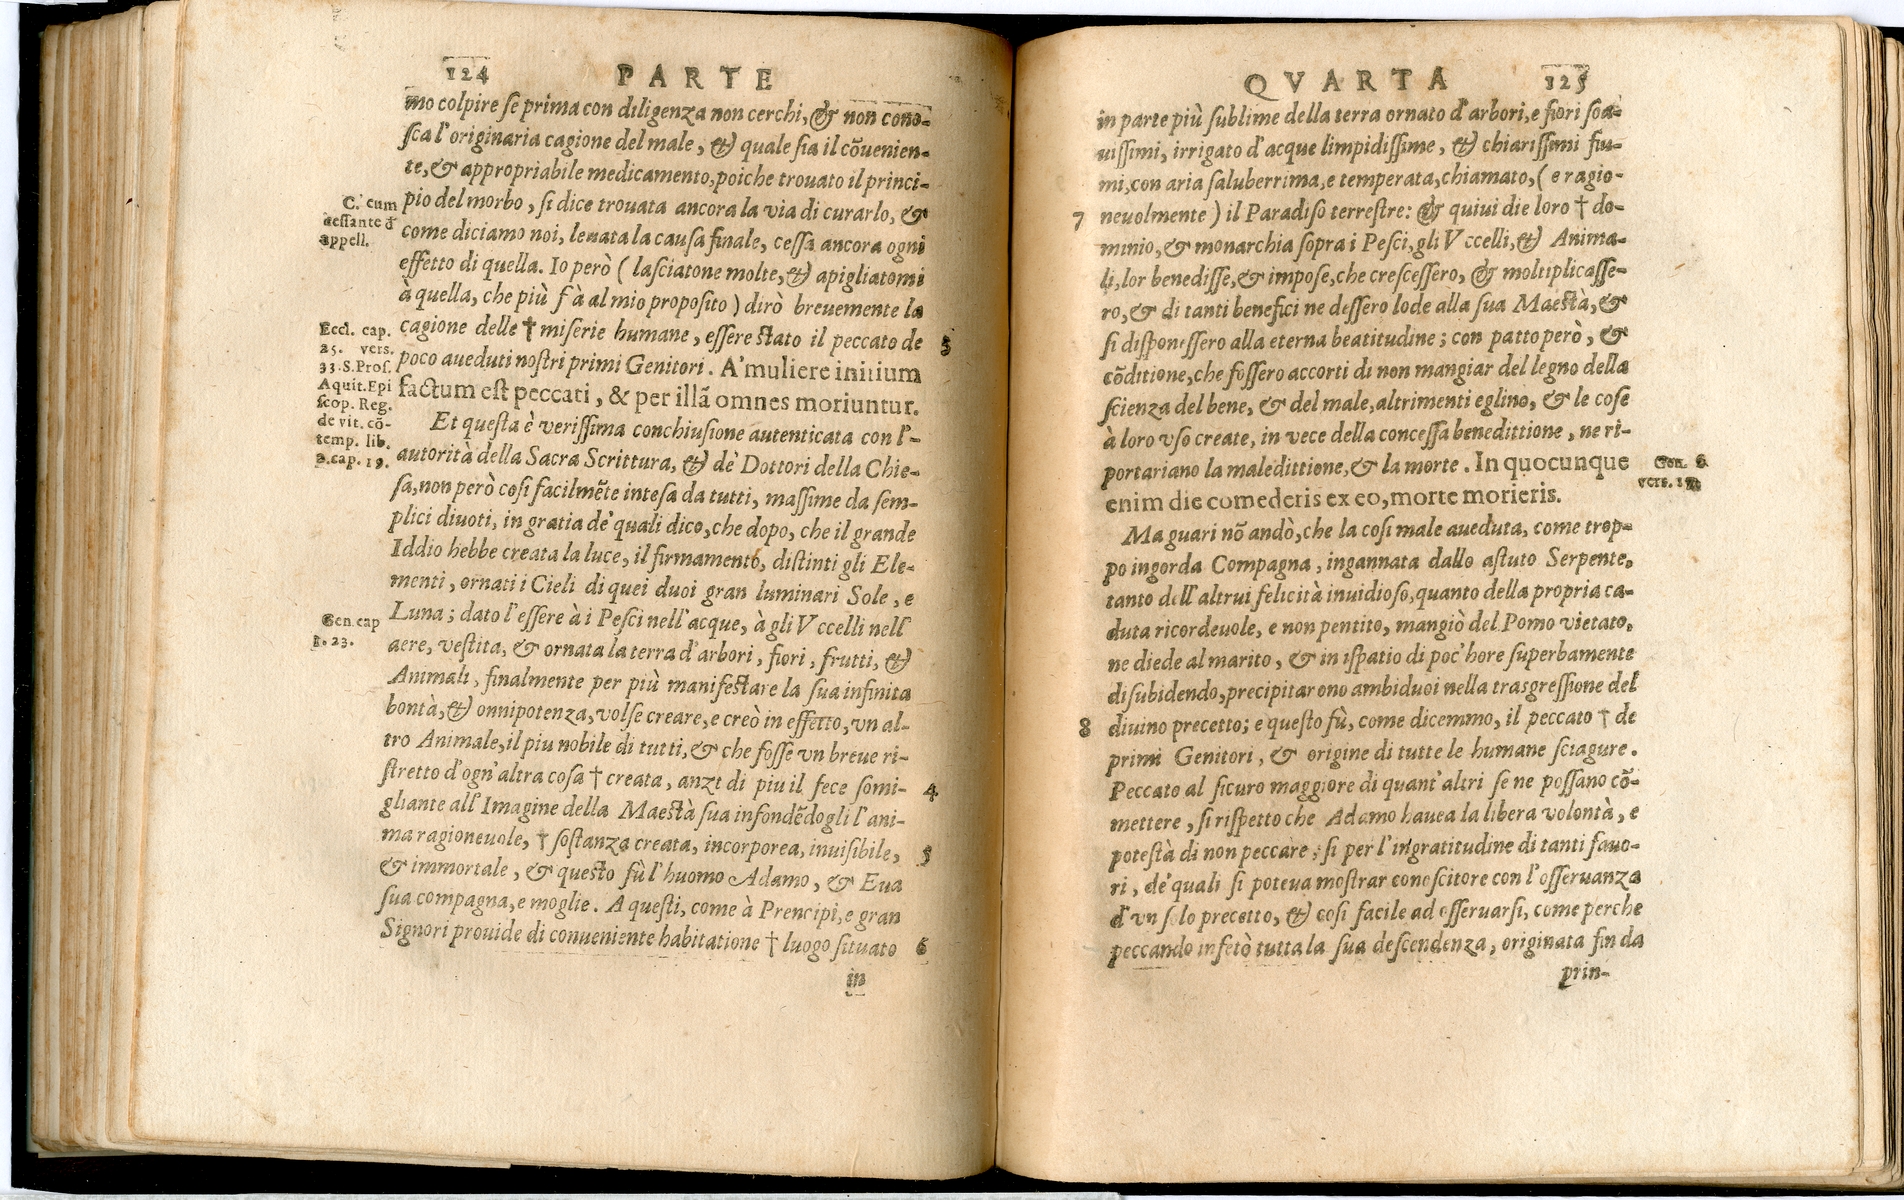 124 PARTE
mo colpire se prima con diligenza non cerchi, & non cono-
sca l'originaria cagione del male, & quale sia il cõuenien-
te, & appropriabile medicamento, poiche trouato il princi-
pio del morbo, si dice trouata ancora la via di curarlo, &
come diciamo noi, leuata la causa finale, cessa ancora ogni
effetto di quella. Io però ( lasciatone molte, & apigliatomi
à quella, che più fà al mio proposito ) dirò breuemente la
cagione delle † miserie humane, essere stato il peccato de
poco aueduti nostri primi Genitori. A' muliere initium
factum est peccati, & per illã omnes moriuntur.
Et questa è verissima conchiusione autenticata con l'-
autorità della Sacra Scrittura, & de' Dottori della Chie-
sa, non però cosi facilmẽte intesa da tutti, massime da sem-
plici diuoti, in gratia de' quali dico, che dopo, che il grande
Iddio hebbe creata la luce, il firmamento, distinti gli Ele-
menti, ornati i Cieli di quei duoi gran luminari Sole, e
Luna; dato l'essere à i Pesci nell'acque, à gli Vccelli nell'
aere, vestita, & ornata la terra d'arbori, fiori, frutti, &
Animali, finalmente per più manifestare la sua infinita
bontà, & onnipotenza, volse creare, e creò in effetto, vn al-
tro Animale, il piu nobile di tutti, & che fosse vn breue ri-
stretto d'ogn'altra cosa † creata, anzi di piu il fece somi-
gliante all'Imagine della Maestà sua infondẽdogli l'ani-
ma ragioneuole, † sostanza creata, incorporea, inuisibile,
& immortale, & questo fù l'huomo Adamo, & Eua
sua compagna, e moglie. A questi, come à Prencipi, e gran
Signori prouide di conueniente habitatione † luogo situato
in
C. cum
cessante d̃
appell.
Eccl. cap.
25. vers.
33. S. Pros.
Aquit. Epi
scop. Reg.
de vit. cõ-
temp. lib.
2. cap. 19.
Gen. cap
1. 23.
3
4
5
6
QVARTA 125
in parte più sublime della terra ornato d'arbori, e fiori soa-
uissimi, irrigato d'acque limpidissime, & chiarissimi fiu-
mi, con aria saluberrima, e temperata, chiamato, ( e ragio-
neuolmente ) il Paradiso terrestre: & quiui die loro † do-
minio, & monarchia sopra i Pesci, gli Vccelli, & Anima-
li, lor benedisse, & impose, che crescessero, & moltiplicasse-
ro, & di tanti benefici ne dessero lode alla sua Maestà, &
si disponessero alla eterna beatitudine; con patto però, &
cõditione, che fossero accorti di non mangiar del legno della
scienza del bene, & del male, altrimenti eglino, & le cose
à loro vso create, in vece della concessa benedittione, ne ri-
portariano la maledittione, & la morte. In quocunque
enim die comederis ex eo, morte morieris.
Ma guari nõ andò, che la cosi male aueduta, come trop-
po ingorda Compagna, ingannata dallo astuto Serpente,
tanto dell'altrui felicità inuidioso, quanto della propria ca-
duta ricordeuole, e non pentito, mangiò del Pomo vietato,
ne diede al marito, & in ispatio di poc'hore superbamente
disubidendo, precipitarono ambiduoi nella trasgressione del
diuino precetto; e questo fù, come dicemmo, il peccato † de
primi Genitori, & origine di tutte le humane sciagure.
Peccato al sicuro maggiore di quant'altri se ne possano cõ-
mettere, si rispetto che Adamo hauea la libera volontà, e
potestà di non peccare; si per l'ingratitudine di tanti fauo-
ri, de' quali si poteua mostrar conoscitore con l'osseruanza
d'vn solo precetto, & cosi facile ad osseruarsi, come perche
peccando infetò tutta la sua descendenza, originata fin da
prin-
7
8
Gen.
vers.